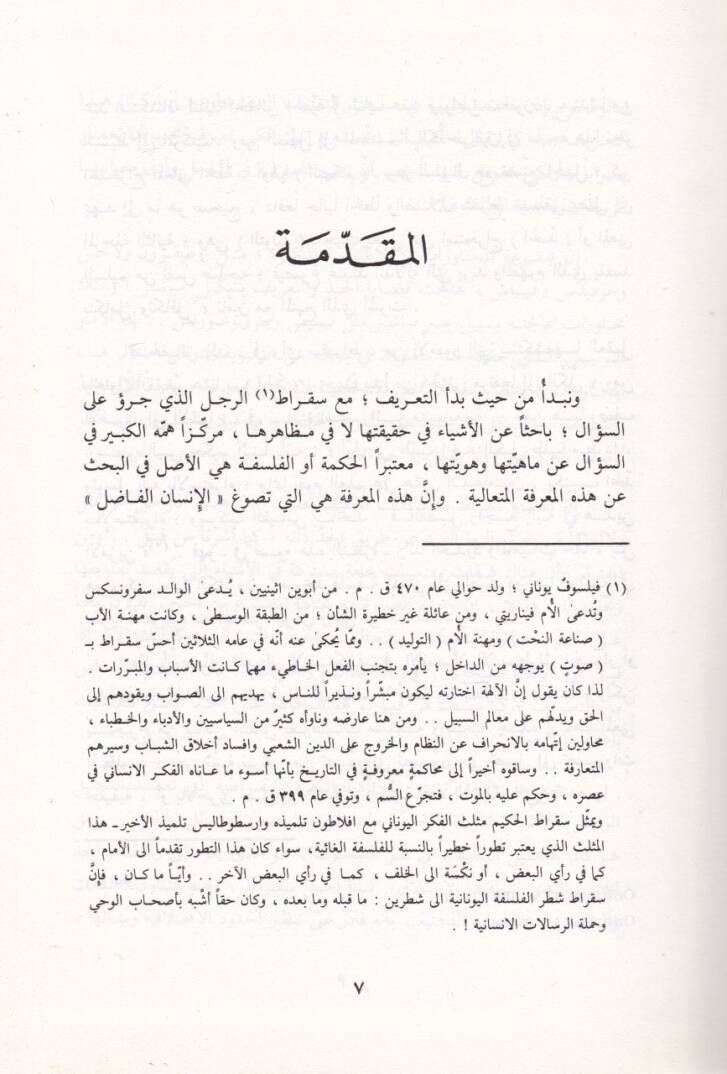 المقدّمة
ونبدأُ من حيث بدأ التعريف ؛ مع سقراط(١) الرجل الذي جرؤ على
السؤال ؛ باحثاً عن الأشياء في حقيقتها لا في مظاهرها ، مركّزاً همّه الكبير في
السؤال عن ماهيّتها وهويّتها ، معتبراً الحكمة أو الفلسفة هي الأصل في البحث
عن هذه المعرفة المتعالية . وإنَّ هذه المعرفة هي التي تصوغ « الإنسان الفاضل »
(١) فيلسوفٌ يوناني ؛ ولد حوالي عام ٤٧٠ ق . م . من أبوين اثينيين ، يُدعىٰ الوالد سفرونسكس
وتُدعىٰ الأُم فيناريتي ، ومن عائلة غير خطيرة الشأن ؛ من الطبقة الوسطىٰ ، وكانت مهنة الأب
( صناعة النحْت ) ومهنة الأُم ( التوليد ) . . وممّا يُحكىٰ عنه أنّه في عامه الثلاثين أحسّ سقراط بـ
( صوتٍ ) يوجهه من الداخل ؛ يأمره بتجنب الفعل الخاطيء مهما كانت الأسباب والمبرّرات .
لذا كان يقول إنَّ الآلهة اختارته ليكون مبشّراً ونذيراً للناس ، يهديهم الى الصواب ويقودهم إلى
الحق ويدلّهم على معالم السبيل . . ومن هنا عارضه وناوأه كثيرٌ من السياسيين والأدباء والخطباء ،
محاولين إتّهامه بالانحراف عن النظام والخروج على الدين الشعبي وافساد أخلاق الشباب وسيرهم
المتعارفة . . وساقوه أخيراً إلى محاكمةٍ معروفةٍ في التاريخ بأنّها أسوء ما عاناه الفكر الانساني في
عصره ، وحكم عليه بالموت ، فتجرّع السُّم ، وتوفي عام ٣٩٩ ق . م .
ويمثّل سقراط الحكيم مثلث الفكر اليوناني مع افلاطون تلميذه وارسطوطاليس تلميذ الأخير ـ هذا
المثلث الذي يعتبر تطوراً خطيراً بالنسبة للفلسفة الغائية، سواء كان هذا التطور تقدماً الى الأمام ،
كما في رأي البعض ، أو نكْسَة الى الخلف ، كما في رأي البعض الآخر . . وأيّاً ما كان ، فإنَّ
سقراط شطر الفلسفة اليونانية الى شطرين : ما قبله وما بعده ، وكان حقاً أشْبه بأصحاب الوحي
وحملة الرسالات الانسانية ! .
٧